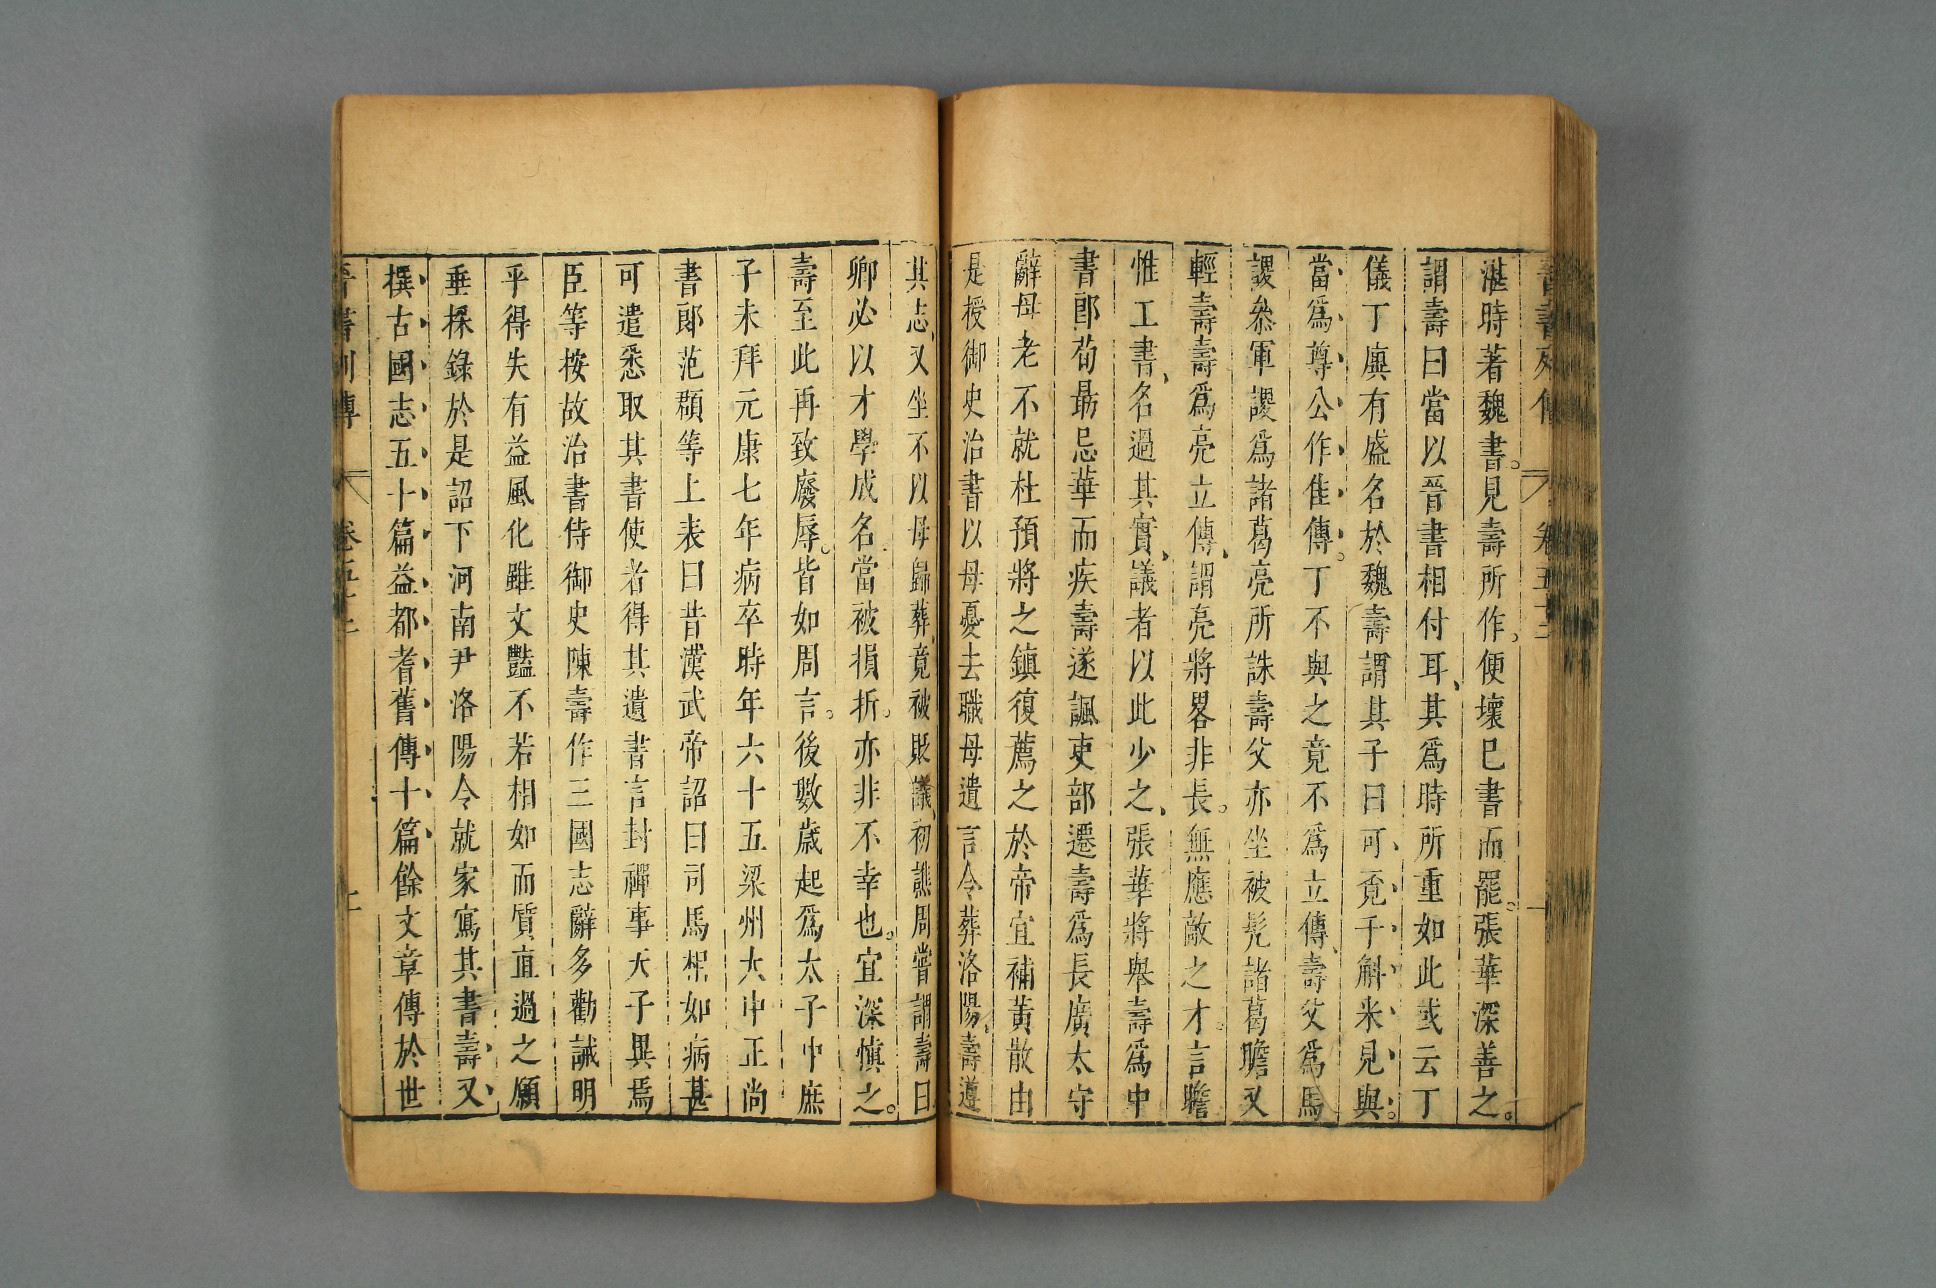 湛時著魏書。見壽所作、便壞已書而罷。張華深善之。
謂壽曰當以晉書相付耳、其爲時所重如此或云丁
儀丁廙有盛名於魏壽謂其子曰可覓千斛米見與。
當爲尊公作佳傳。丁不與之竟不爲立傳、壽父爲馬
謖叅軍謖爲諸葛亮所誅壽父亦坐被髠諸葛瞻又
輕壽壽爲亮立傳、謂亮將畧非長。無應敵之才。言瞻
惟工書、名過其實、議者以此少之、張華將舉壽爲中
書郎荀勗忌華而疾壽遂諷吏部遷壽爲長廣太守
辭母老不就杜預將之鎮復薦之於帝宜補黃散由
是授御史治書以母憂去職母遺言令葬洛陽。壽遵
其志、又坐不以母歸葬、竟被貶議、初譙周嘗謂壽曰
卿必以才學成名當被損折。亦非不幸也。宜深慎之。
壽至此再致廢辱。皆如周言。後數歲起爲太子中庶
子未拜元康七年病卒時年六十五梁州大中正尚
書郎范頵等上表曰昔漢武帝詔曰司馬相如病甚
可遣悉取其書使者得其遺書言封禪事天子異焉
臣等按故治書侍御史陳壽作三國志辭多勸誡明
乎得失有益風化雖文豔不若相如而質直過之願
垂採錄於是詔下河南尹洛陽令就家寫其書壽又
撰古國志五十篇益都耆舊傳十篇餘文章傳於世
晉書列傳 卷五十二